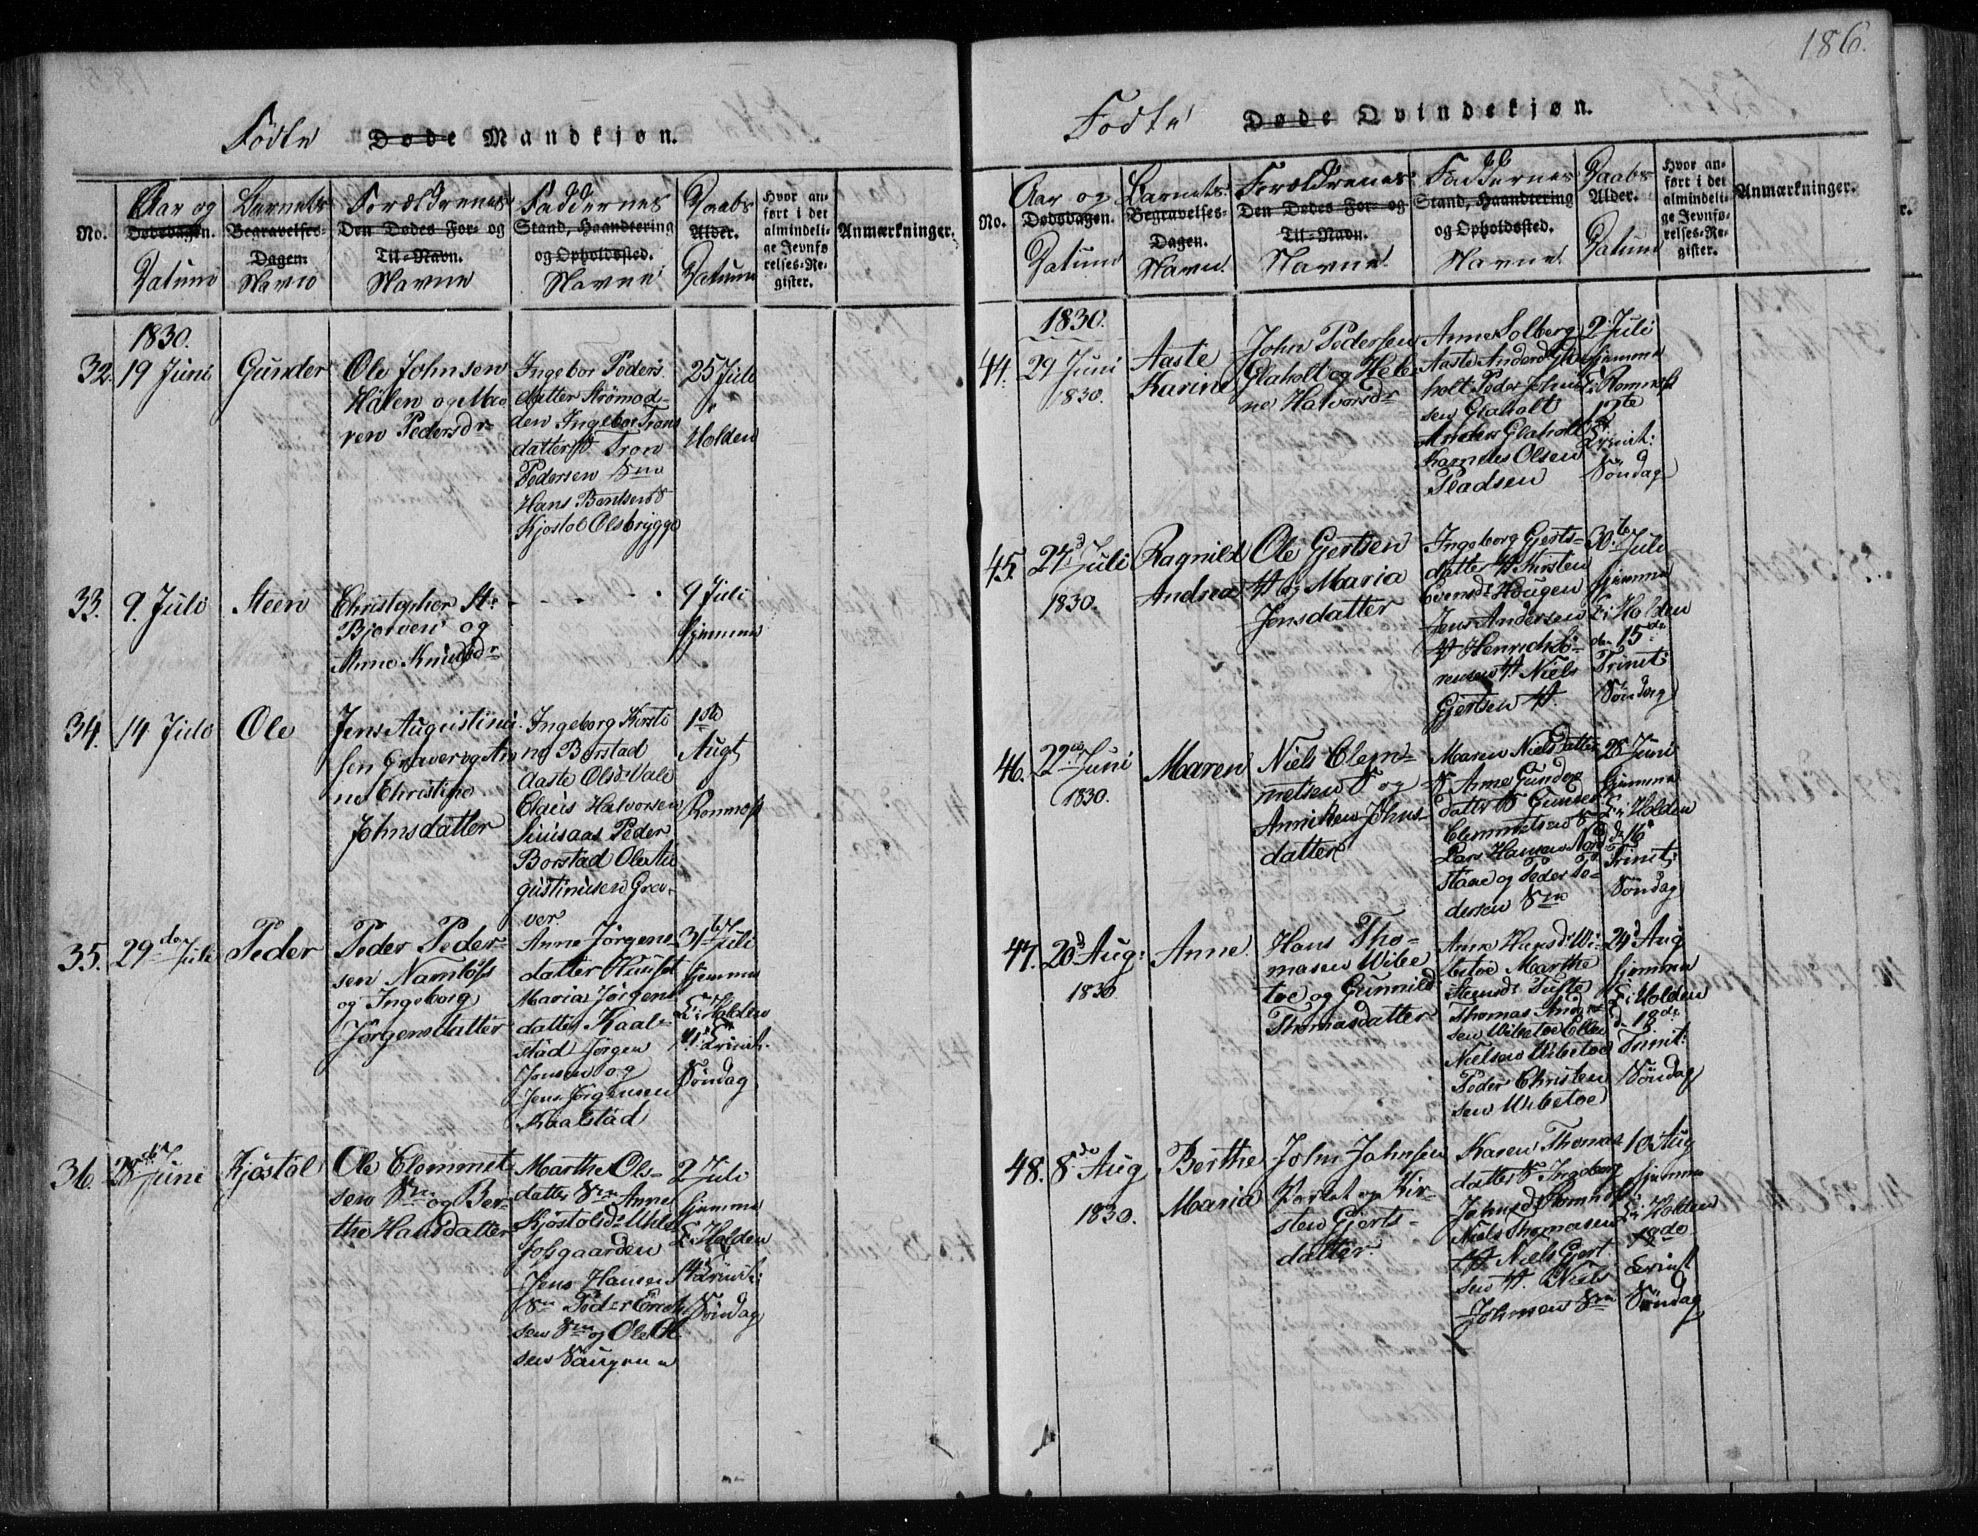 186.
Fødte Døde Mandkjøn.
No.
Aar og
Dødsdagen.
Datum
Barnets
Begravelses-
Dagen.
Navn
Forældrenes
Den Dødes For- og
Til-Navn.
Navne
Faddernes
Stand, Haandtering
og Opholdssted.
Navne
Daabs
Alder.
Datum
Hvor an-
ført i det
almindeli-
ge Jevnfø
relses-Re-
gister.
Anmærkninger.
1830.
32. 19 Juni
Gunder
Ole Johnsen
Holen og Ma
ren Pedersdr
Ingebor Peders
datter Strømod-
den Ingebor Trons
datter Tron
Pedersen
Hans Bentsen
Kjostol Olsbrygge
25 Juli
Holden
33. 9. Juli
Steen
Christopher St:
Bjorven og
Anne Knudsdr
9 Juli
hjemme
34. 14 Juli
Ole
Jens Augustinu
sen Graver og An
ne Christine
Johnsdatter
Ingeborg Kirsti
ne Borstad
Aaste Olsd Vale
Claus Halvorsen
Peder
Borstad Ole Au
gustinusen Gra-
ver
1ste
Augt
Romnæs
35. 29de Juli
Peder
Peder Peder-
sen Namløs
og Ingeborg
Jørgensdatter
Anne Jørgens
datter
Maria Jørgens
datter Kaal-
stad Jørgen
Jensen og
Jens Jørgensen
Kaalstad
31te Juli
hjemme
i Holden
Trinit:
Søndag
36. 28de Juni
Kjøstol
Ole Clemmet
sen og Ber
the Hansdatter
Marthe Ols-
datter Anne
Kjøstolsdr Uhle
fosgaarden
Jens Hansen
Peder Erich
sen og Ole Ol
sen Haugen
2 Juli
hjemme
Holden
Trinit:
Søndag
Fødte Døde Qvindekjøn.
No.
Aar og
Dødsdagen.
Datum
Barnets
Begravelses-
Dagen.
Navn
Forældrenes
Den Dødes For- og
Til-Navn.
Navne
Faddernes
Stand, Haandtering
og Opholdssted.
Navne
Daabs
Alder.
Datum
Hvor an-
ført i det
almindeli-
ge Jevnfø-
relses-Re-
gister.
Anmærkninger.
1830.
44. 29 Juni
1830.
Aaste
Karine
John Pedersen
Glaholt og Hele
ne Halvorsdr
Anne Solberg
Aaste Andersd Gla
holt Peder Johne
sen Glaholt
Anders Glaholt
Hannes Olsen
Pladsen
2 Juli
hjemme
i Romnæs
12te
Trinit:
Søndag
45. 27d Juli
1830.
Ragnild
Andrea
Ole Gjertsen
og Maria
Jensdatter
Ingeborg Gjerts-
datter Kirsten
Evensdr Hougen
Jens Andersen
Henrich Sö-
rensen Niels
Gjertsen
30te Juli
hjemme
i Holden
den 15de
Trinit:
Søndag
46. 22de Juni
1830.
Maren
Niels Clem-
metsen og
Anne Johns
datter
Maren Nielsdatter
Anne Gunders
datter Gunder
Clemmetsen
Lars Hansen Nord
staae og Peder Pe-
dersen
28 Juni
hjemme
i Holden
d 16
Trinit:
Søndag
47. 20d Aug:
1830
Anne
Hans Tho-
masen Wibe
toe og Gunnild
Thomasdatter
Anne Hansdr Wi-
betoe Marthe
Steensdr Tufte
Thomas Anders
sen Wibetoe Ellen
Nielsen Wibetoe
Peder Christen
sen Wibetoe
24d Aug
hjemme
i Holden
d 18de
Trinit:
Søndag
48. 8de Aug
1830.
Berthe
Maria
John Johnsen
og Kir-
sten Gjerts-
datter
Karen Thomas
datter Ingeborg
Johnsd Romnæs
Niels Thomasen
Niels Gjert
sen Niels
Johnsen
10 Aug
hjemme
i Holden
Trinit
Søndag